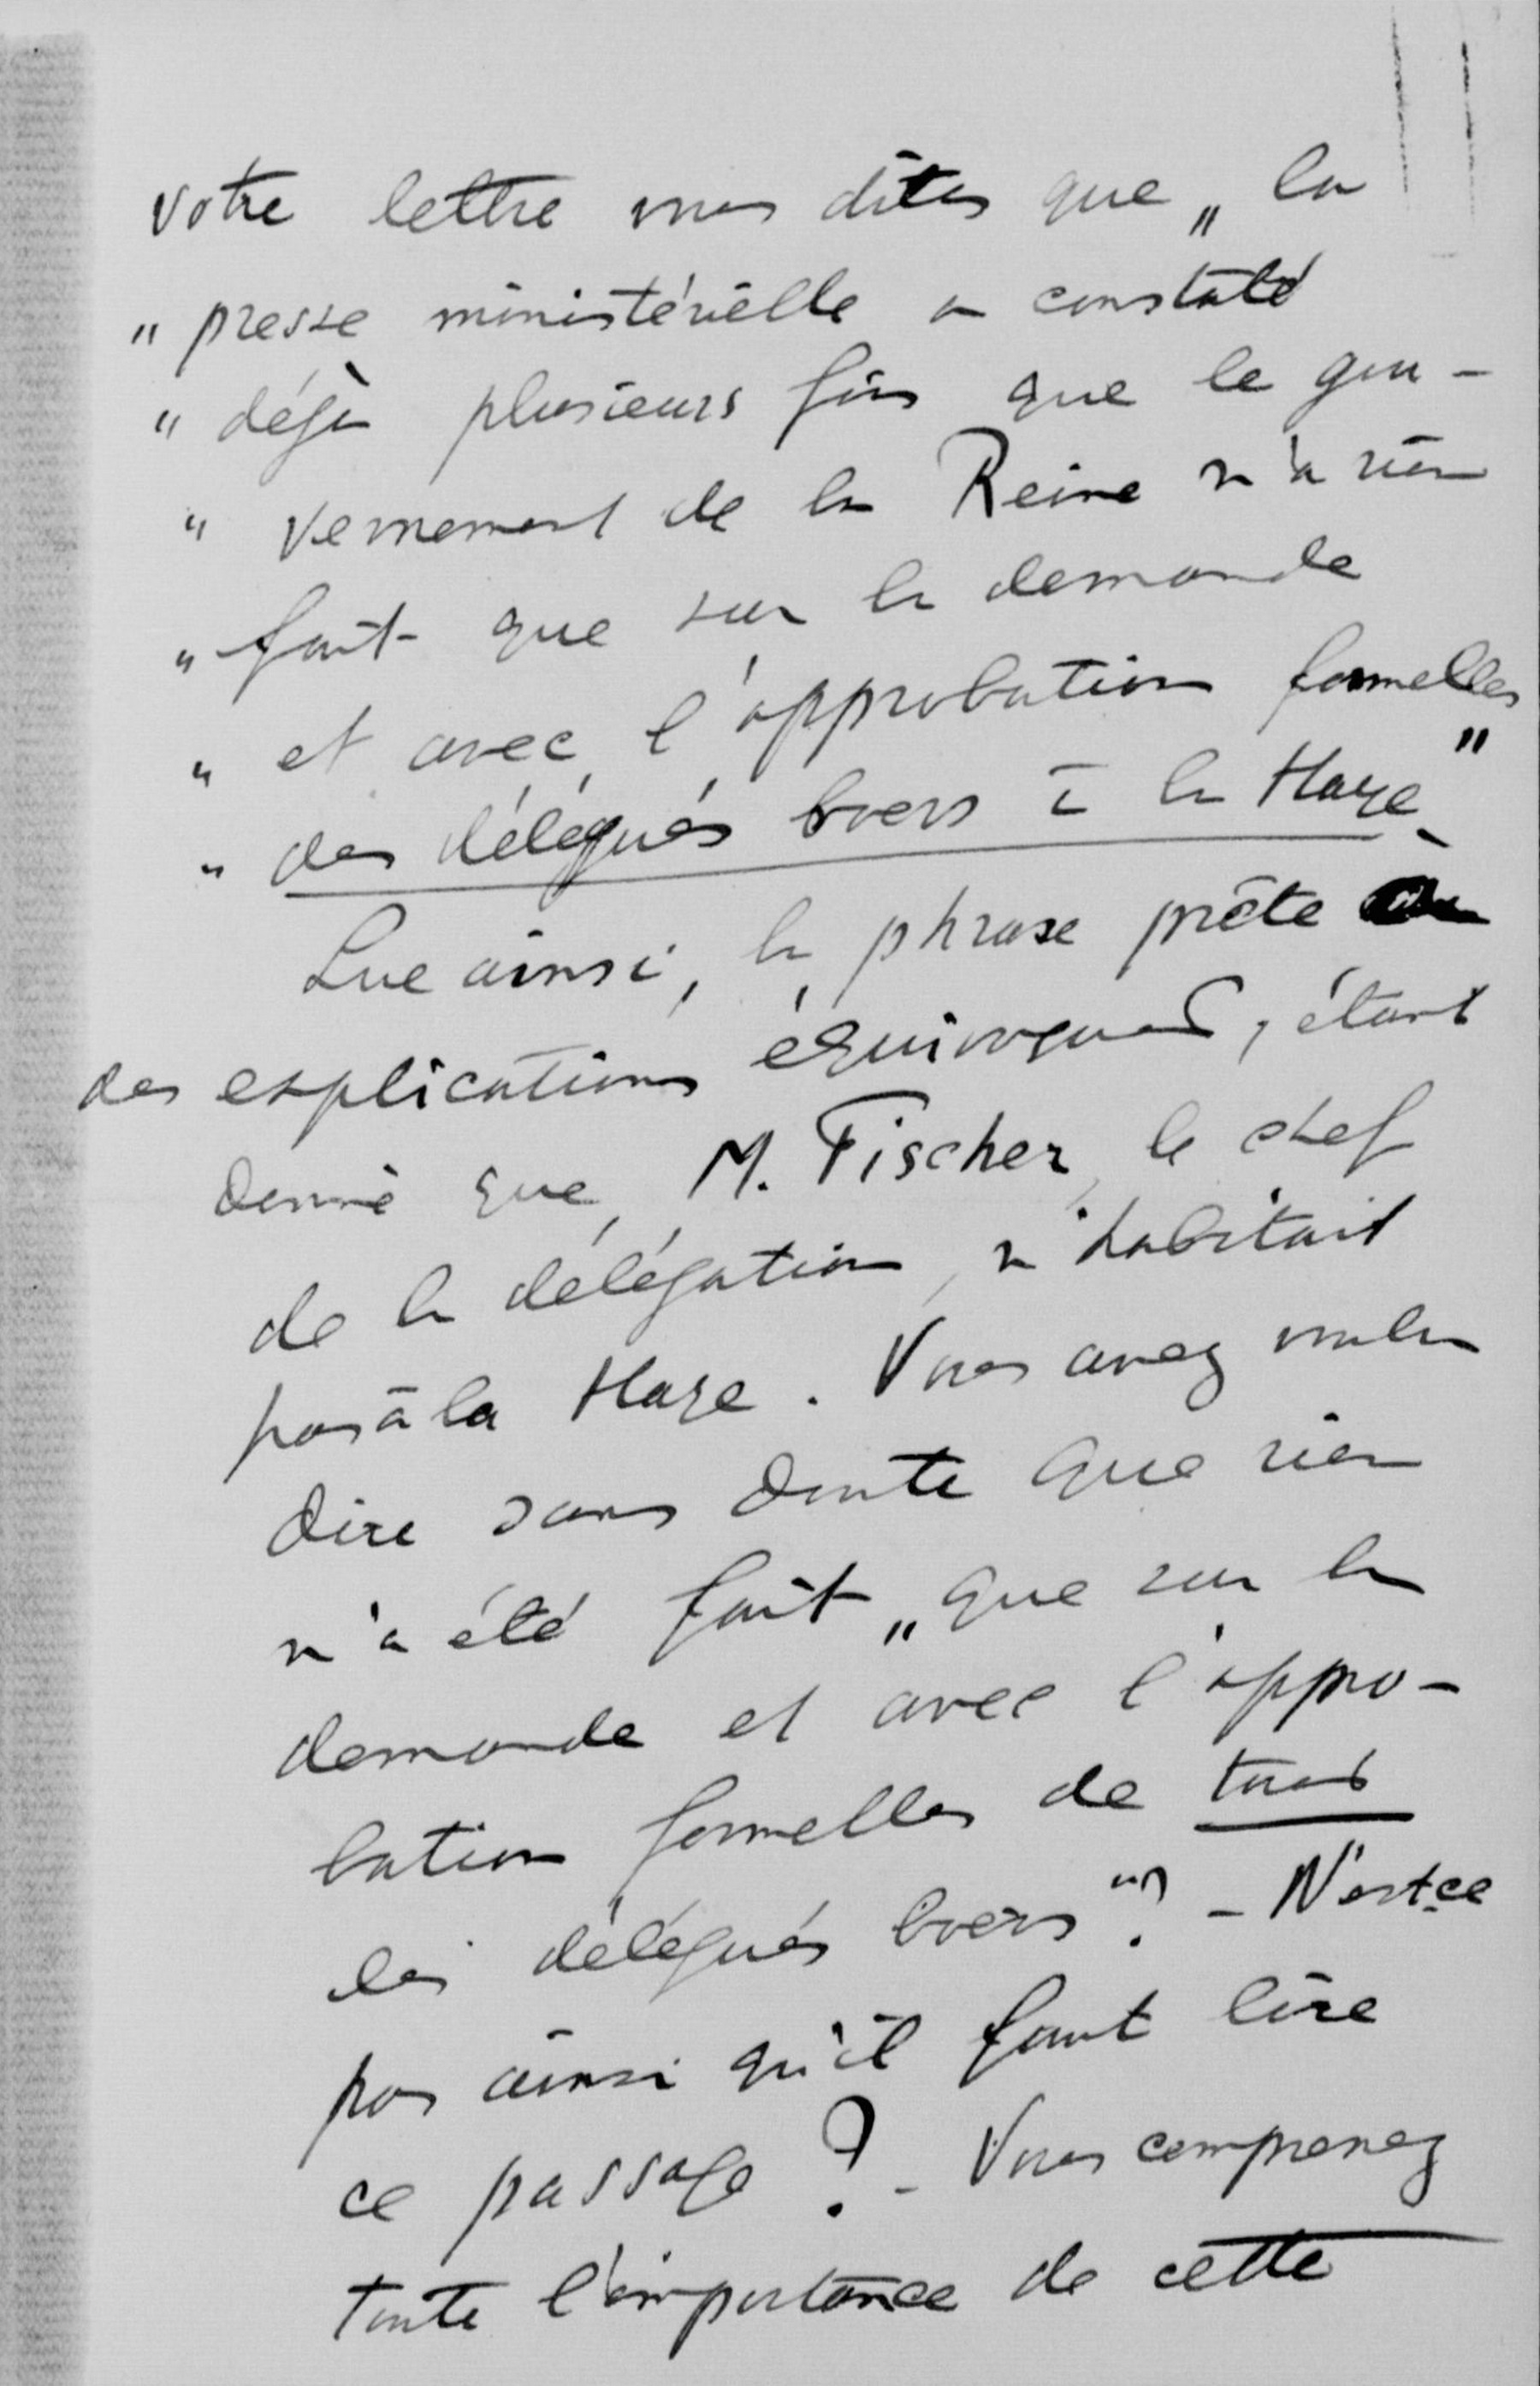 votre lettre vous dites que „ la
" presse ministérielle a constaté
" déjà plusieurs fois que le gou-
" vernement de la Reine n'a rien
" fait que sur la demande
" et avec l'approbation formelles
" des délégués boers à la Haye"
Lue ainsi, la phrase prête à
des explications équivoques, étant
donné que M. Fischer, le chef
de la délégation, n'habitait
pas à la Haye. Vous avez voulu
dire sans doute que rien
n'a été fait „ que sur la
demande et avec l'appro-
bation formelles de tous
les délégués boers"? - N'est-ce
pas ainsi qu'il faut lire
ce passage ? - Vous comprenez
toute l'importance de cette